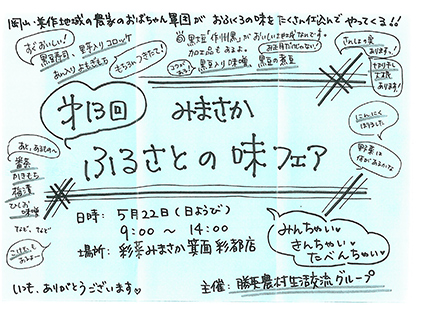 岡山・美作地域の農家のおばちゃん軍団が おふくろの味をたくさん作込んで やってくる!!
すぐおいしい!
黒豆寿司
野入りコロッケ
あん入り よもぎもち
もちろんつきたて!
黒豆「作州黒」がおいしい地域なんです。
加工品もあるよ。
お正月だけじゃない!
コクがある
黒豆入り味噌
黒豆の煮豆
さんしょう漬
あります!
切り干し
大根
あります!
第13回
みまさか
ふるさとの味フェア
にんにく
はりました
野菜は
あと、あるものへ
番茶
かきもち
梅漬
ひしお
味噌
など、など
日時: 5月22日(日ようび)
9:00 ~ 14:00
場所: 彩菜みまさか 箕面 彩都店
みんちゃい♥
さんちゃい♥
たべんちゃい♥
いつも、ありがとうございます♥
主催: 勝英農村生活交流グループ